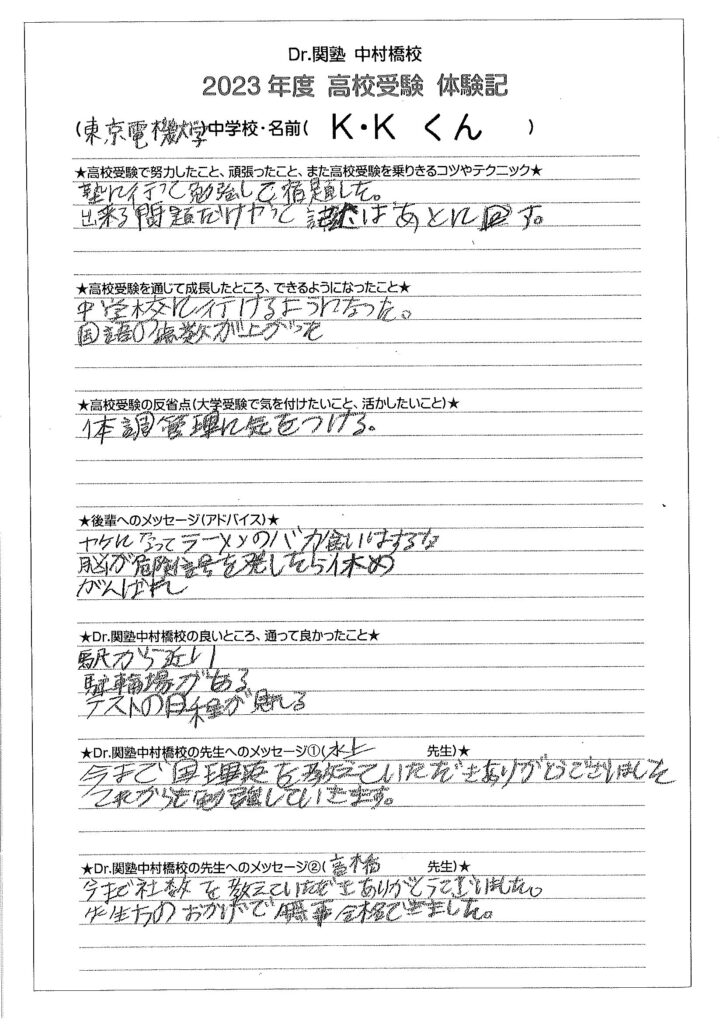 Dr.関塾 中村橋校
2023年度 高校受験 体験記
(東京電機大学)中学校・名前( K・K くん )
★高校受験で努力したこと、頑張ったこと、また高校受験を乗りきるコツやテクニック★
塾に行って勉強して宿題した。
出来る問題だけやって ばあとに回す。
★高校受験を通じて成長したところ、できるようになったこと★
中学校に行けるようになった。
国語の点数が上がった
★高校受験の反省点(大学受験で気を付けたいこと、活かしたいこと)★
体調管理に気をつける。
★後輩へのメッセージ(アドバイス)★
ヤケになってラーメンのバカ食いはするな
脳が危険信号を発したら休め
がんばれ
★Dr.関塾中村橋校の良いところ、通って良かったこと★
駅から近い
駐輪場がある
テストの日程が見れる
★Dr.関塾中村橋校の先生へのメッセージ①(水上 先生)★
今まで国理英を教えていただきありがとうございました
これからも勉強していきます。
★Dr.関塾中村橋校の先生へのメッセージ②(高橋 先生)★
今まで社数を教えていただきありがとうございました。
先生方のおかげで無事合格できました。